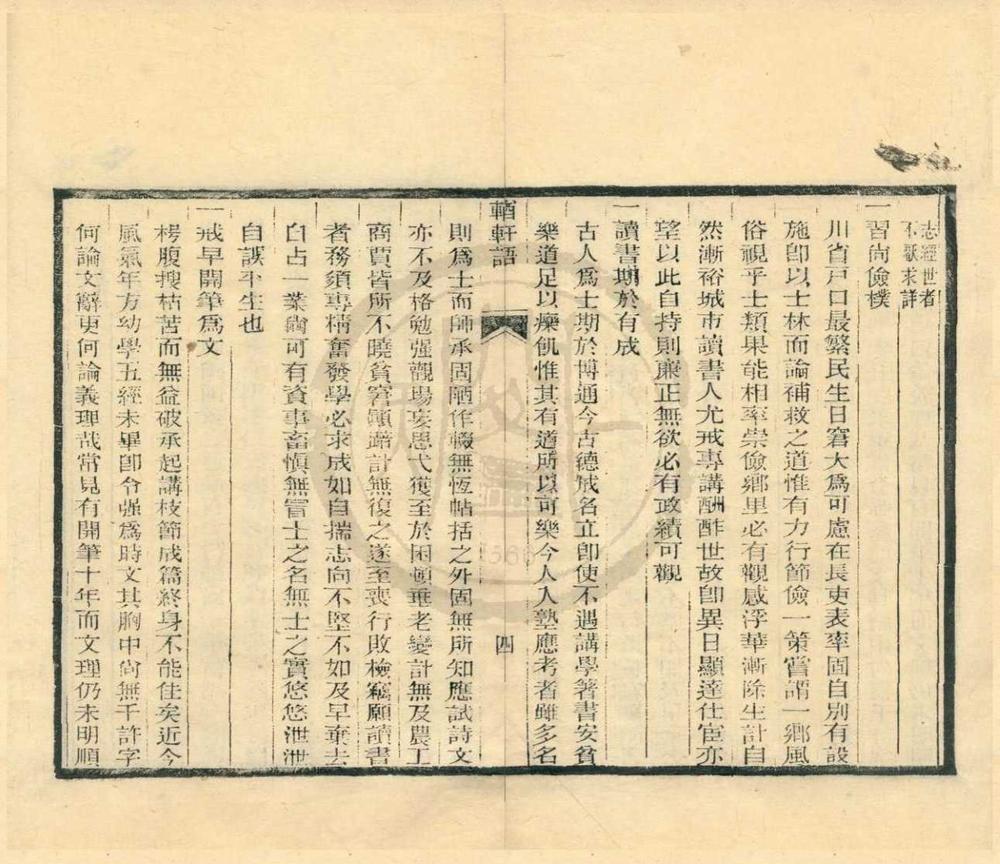 志經世者
不厭求詳
一習尚儉樸
川省戸口最繁民生日窘大爲可慮在長吏表率固自別有設
施卽以士林而論補救之道惟有力行節儉一策嘗謂一鄉風
俗視乎士類果能相率崇儉鄉里必有觀感浮華漸除生計自
然漸裕城市讀書人尤戒專講酬酢世故卽異日顯達仕宦亦
望以此自持則廉正無欲必有政績可觀
一讀書期於有成
古人爲士期於博通今古德成名立卽使不遇講學箸書安貧
樂道足以療飢惟其有道所以可樂今人入塾應考者雖多名
輶軒語
四
則爲士而師承固陋作輟無恆帖括之外固無所知應試詩文
亦不及格勉强觀場妄思弋獲至於困頓垂老變計無及農工
商賈皆所不曉貧窘顚踣計無復之遂至喪行敗檢竊願讀書
者務須專精奮發學必求成如自揣志向不堅不如及早棄去
自占一業尙可有資事畜愼無冒士之名無士之實悠悠泄泄
自誤半生也
一戒早開筆爲文
枵腹搜枯苦而無益破承起講枝節成篇終身不能佳矣近今
風氣年方幼學五經未畢卽令强爲時文其胸中尙無千許字
何論文辭更何論義理哉常見有開筆十年而文理仍未明順